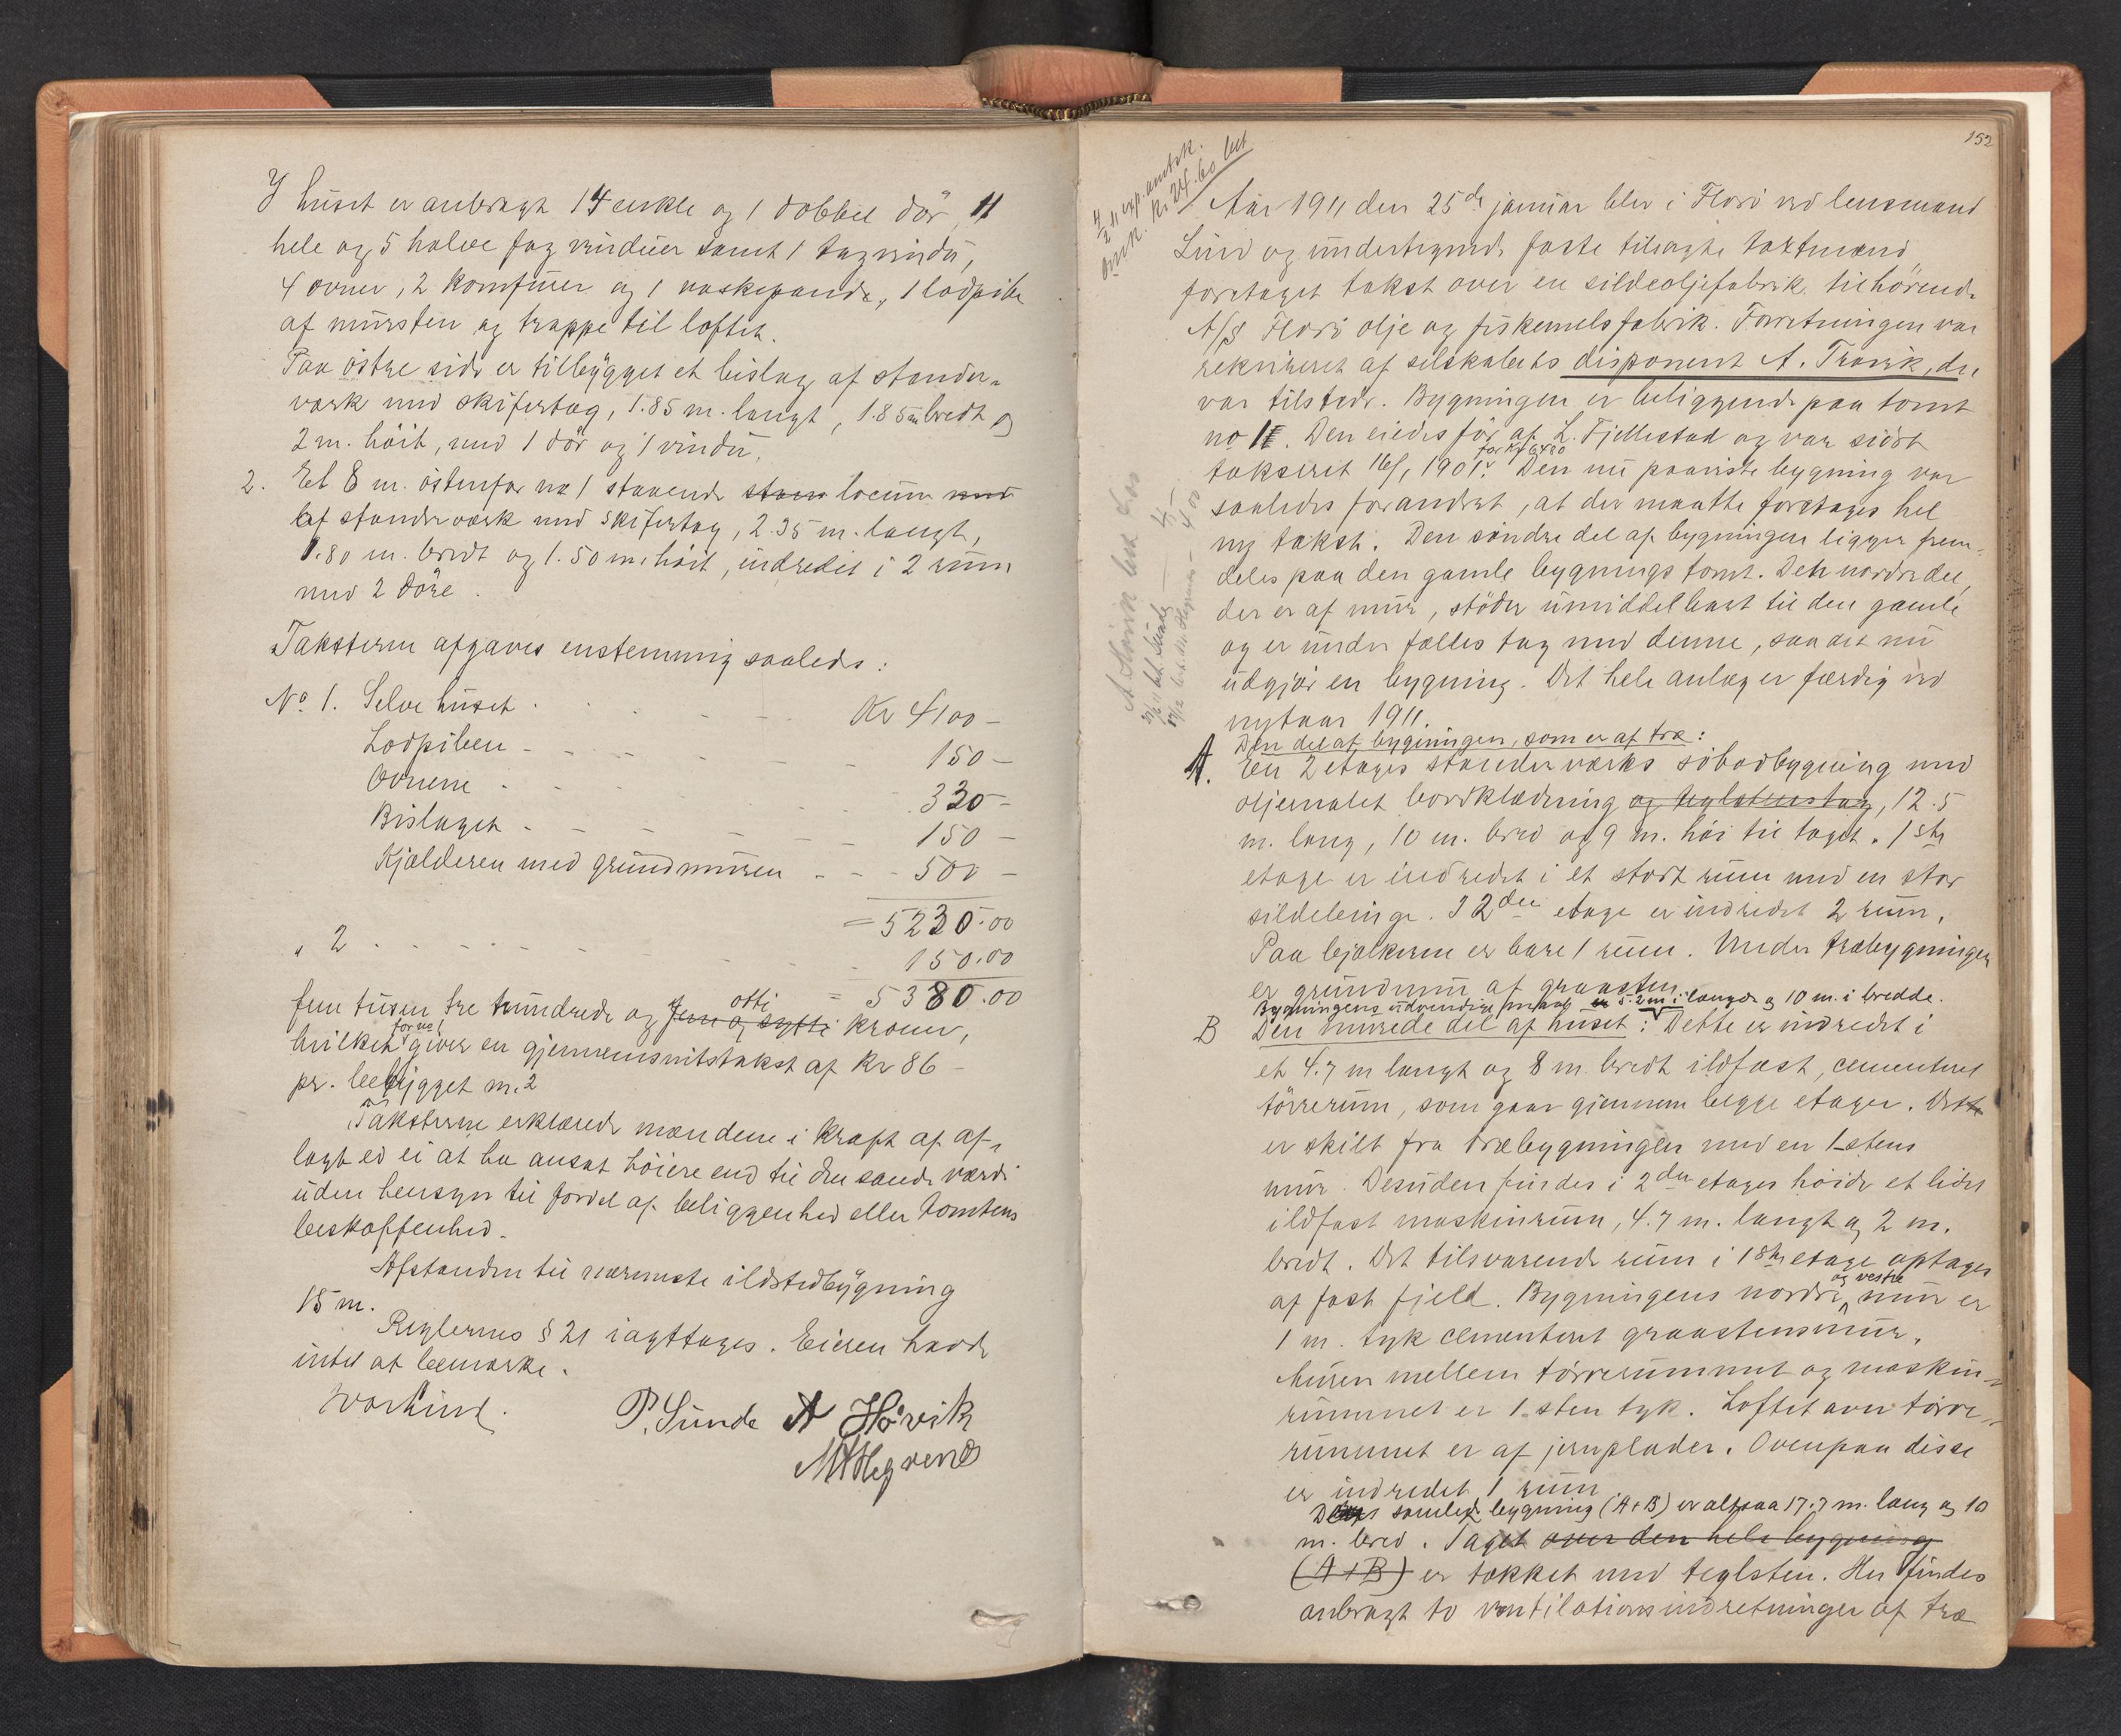 I huset er anbragt 14 enkle og 1 dobbel dör, 11
hele og 5 halve fag vinduer samt 1 tagvindu,
4 ovner, 2 komfurer og 1 vaskepande, 1 lodpibe
af mursten og trappe til loftet.
Paa östre side er tilbygget et bislag af stander-
værk med skifertag, 1.85 m. langt, 1.85 m bredt og
2 m. höit, med 1 dör og 1 vindu.
2. Et 8 m. östenfor no 1 staaende locum
af standerværk med skifertag, 2.35 m. langt,
1.80 m. bredt og 1.50 m. höit, indredet i 2 rum
med 2 döre.
Taksterne afgaves enstemmig saaledes:
No. 1. Selve huset Kr 4100 -
Lodpiben - 150 -
Ovnene 330 -
Bislaget - 150 -
Kjælderen med grundmuren - 500 -
= 5230.00
" 2 150.00
= 5380.00
fem tusen tre hundrede og fem og sytti otti kroner,
hvilket for no 1 giver en gjennemsnitstakst af Kr 86 -
pr. bebygget m.2
Taksterne erklærede mændene i kraft af af-
lagt ed ei at ha ansat höiere end til den sande værdi
uden hensyn til fordel af beliggenhed eller tomtens
beskaffenhed.
Afstanden til nærmeste ildstedbygning
15 m.
Reglernes § 21 iagttages. Eieren havde
intet at bemærke.
P. Sunde A Hovik
152
Aar 1911 den 25de januar blev i Florö ved lensmand
Lund og undertegnede faste tilsagte taxtmænd
foretaget takst over en sildeoljefabrik tilhörende
A/S Florö olje og fiskemelsfabrik. Forretningen var
rekvireret af selskabets disponent A. Travik, der
var tilstede. Bygningen er beliggende paa tomt
no 11. Den eiedes för af L. Fjellestad og var sidst
takseret 16/1 1901 for Kr 6480. Den nu paaviste bygning var
saaledes forandret, at der maatte foretages hel
ny takst. Den söndre del af bygningen ligger frem-
deles paa den gamle bygnings tomt. Den nordre del,
der er af mur, stöder umiddelbart til den gamle
og er under fælles tag med denne, saa det nu
udgjör en bygning. Det hele anlæg er færdig ved
nytaar 1911.
Den del af bygningen, som er af træ:
A. En 2 etages standerværks söbodbygning med
oljemalet bordklædning og teglstenstag, 12.5
m. lang, 10 m. bred og 9 m. höi til taget. 1ste
etage er indredet i et stort rum med en stor
sildebinge. I 2den etage er indredet 2 rum.
Paa bjælkerne er bare 1 rum. Under træbygningen
er grundmur af graasten.
Bygningens udvendige maal 5.2 m i længde og 10 m. i bredde.
B Den murede del af huset: Dette er indredet i
et 4.7 m langt og 8 m. bredt ildfast, cementeret
törrerum, som gaar gjennem begge etager. Dette
er skilt fra træbygningen med en 1-stens
mur. Desuden findes i 2den etages höide et lidet
ildfast maskinrum, 4.7 m. langt og 2 m.
bredt. Det tilsvarende rum i 1ste etage optages
af fast fjeld. Bygningens nordre og vestre mur er
1 m. tyk cementeret graastensmur.
Muren mellem törrerummet og maskin-
rummet er 1-sten tyk. Loftet over törre-
rummet er af jernplader. Ovenpaa disse
er indredet 1 rum
samlede bygning (A+B) er altsaa 17.7 m. lang og 10
m. bred. Taget over den hele bygning
(A+B) er tækket med teglsten. Her findes
anbragt to ventilationsindretninger af træ